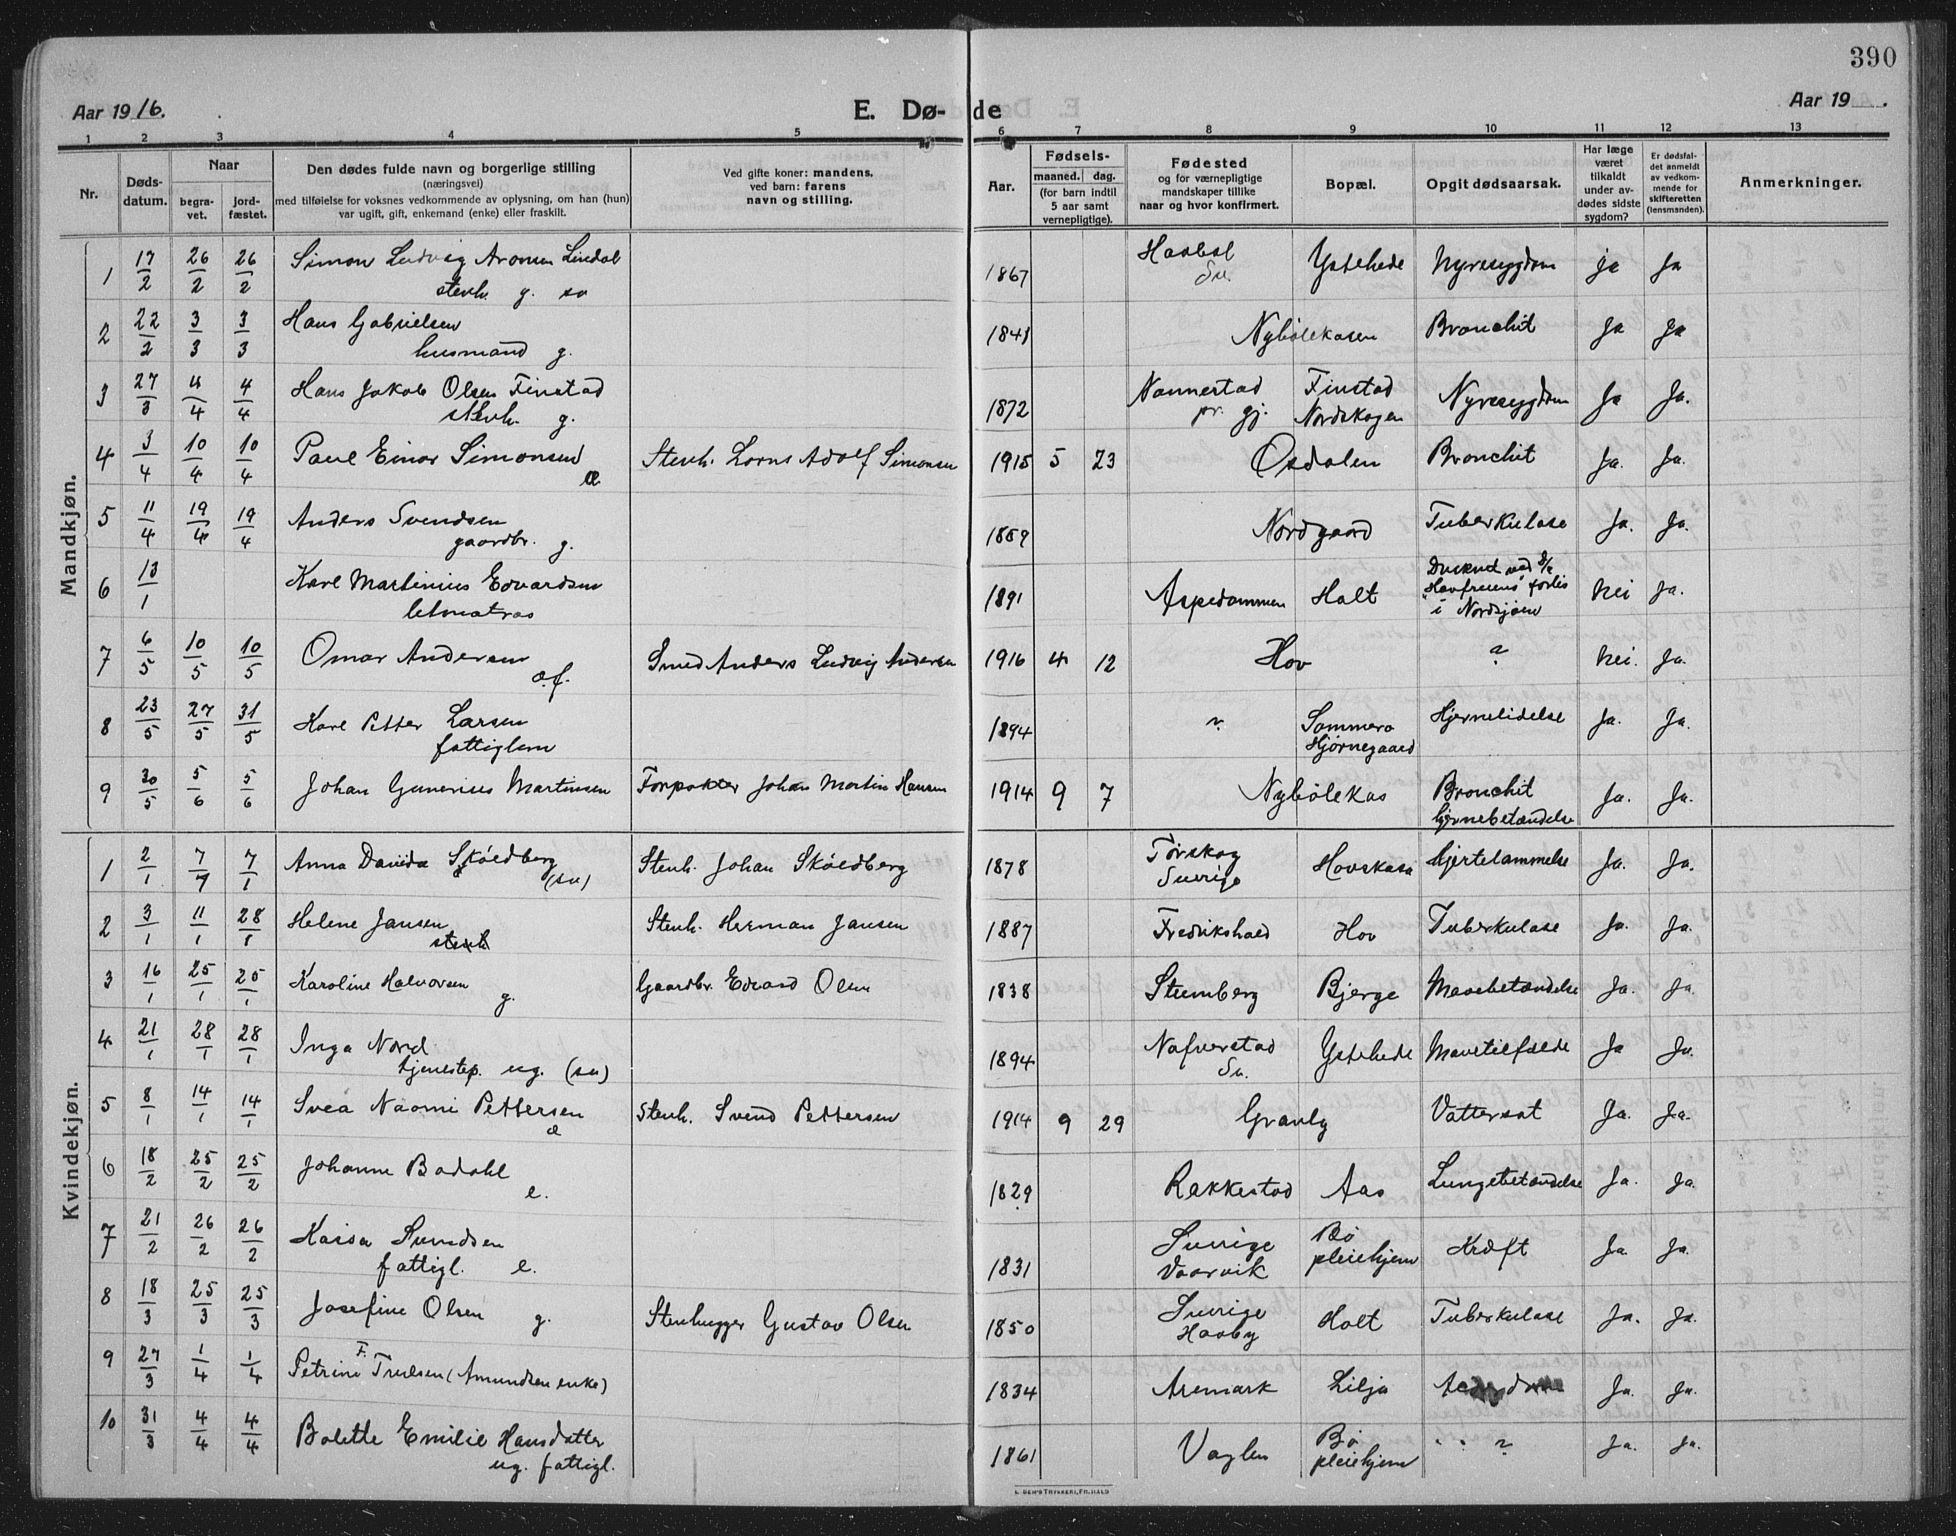 390
Aar 1916.
E. Dø-
de
Aar 19 .
1 2 3 4 5 6 7 8 9 10 11 12 13
Nr.
Døds-
datum.
Naar
begra-
vet.
jord-
fæstet.
Den dødes fulde navn og borgerlige stilling
(næringsvei)
med tilføielse for voksnes vedkommende av oplysning, om han (hun)
var ugift, gift, enkemand (enke) eller fraskilt.
Ved gifte koner: mandens,
ved barn: farens
navn og stilling.
Aar.
Fødsels-
maaned. dag.
(for barn indtil
5 aar samt
vernepligtige).
Fødested
og for værnepligtige
mandskaper tillike
naar og hvor konfirmert.
Bopæl.
Opgit dødsaarsak.
Har læge
været
tilkaldt
under av-
dødes sidste
sygdom?
Er dødsfal-
det anmeldt
av vedkom-
mende for
skifteretten
(lensmanden).
Anmerkninger.
Mandkjøn.
1 17/2 26/2 26/2 Simon Ludvig Aronsen Lindal 1867 Haabøl Ystehede Nyresygdom ja Ja
stenh. g. sv Sv.
2 22/2 3/3 3/3 Hans Gabrielsen 1841 Nybølekasen Bronchit Ja Ja
husmand g.
3 27/3 4/4 4/4 Hans Jakob Olsen Finstad 1872 Nannestad Finstad Nyresygdom Ja Ja.
stenh. g. pr. gj. Nordskogen
4 3/4 10/4 10/4 Paul Einar Simonsen Stenh. Lorns Adolf Simonsen 1915 5 23 Osdalen Bronchit Ja. Ja.
æ
5 11/4 19/4 19/4 Anders Svendsen 1859 Nordgaard Tuberkulose Ja. Ja.
gaardbr. g.
6 13/1 Karl Martinius Edvardsen 1891 Aspedammen Holt Druknet ved
letmatros "Havfruens" forlis nei Ja.
i Nordsjøen
7 6/5 10/5 10/5 Omar Andersen Smed Anders Ludvig Andersen 1916 4 12 Hov ? Nei. Ja.
æ.f.
8 23/5 27/5 31/5 Karl Petter Larsen 1894 ? Sommero Hjernelidelse Ja. Ja.
fattiglem Hjørnegaard
9 30/5 5/6 5/6 Johan Gunerius Martinsen Forpakter Johan Martin Hansen 1914 9 7 Nybølekas Bronchit Ja. Ja.
hjernebetændelse
Kvindekjøn.
1 2/1 7/7 7/1 Anna Davida Skóldberg Stenh. Johan Skóldberg 1878 Torskog Hovskasa Hjertelammelse Ja. Ja.
(sv) Sverige
2 3/1 11/1 28/1 Helene Jansen Stenh. Herman Jansen 1887 Fredrikshald Hov Tuberkulose Ja. Ja.
stenh
3 16/1 25/1 25/1 Karoline Halvorsen Gaardbr. Edvard Olsen 1838 Stumberg Bjerge Mavebetændelse Ja. Ja.
g.
4 21/1 28/1 28/1 Inga Nord 1894 Nafverstad Ystehede Mavetilfælde Ja Ja.
tjenestep. ug. (sv) Sv.
5 8/1 14/1 14/1 Svea Naomi Pettersen Stenh. Svend Pettersen 1914 9 29 Granly Vattersot Ja. Ja.
æ
6 18/2 25/2 25/2 Johanne Bødahl 1829 Rakkestad Aas Lungebetændelse Ja. Ja.
e.
7 21/2 26/2 26/2 Kaisa Svendsen 1831 Sverige Bø Kræft Ja Ja.
fattigl. e. Vaarvik pleiehjem
8 18/3 25/3 25/3 Josefine Olsen Stenhugger Gustav Olsen 1850 Sverige Holt Tuberkulose Ja. Ja.
g. Haaby
9 27/3 1/4 1/4 Petrine F. Trulsen (Amundsen enke) 1834 Aremark Lilja Ja. Ja.
10 31/3 4/4 4/4 Bolette Emilie Hansdatter 1861 Vaglen Bø " " ? Ja. Ja.
ug. fattigl. pleiehjem
E. SEM'S TRYKKERI, FR.HALD